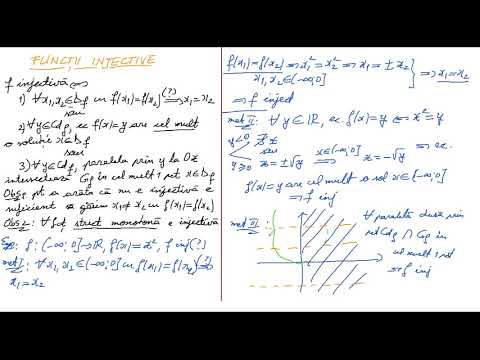 FUNCȚII INJECTIVE
f injectivă ⇔
1) ∀x₁,x₂∈Df cu f(x₁)=f(x₂) (?)⟹ x₁=x₂
sau
2) ∀y∈Cdf, ec f(x)=y are cel mult
o soluție x∈Df
sau
3) ∀y∈Cdf, paralela prin y la Ox
intersectează Gf în cel mult 1 pct x∈Df
Obs₁: pt a arăta că nu e injectivă e
suficient să găsim x₁≠x₂ cu f(x₁)=f(x₂)
Obs₂: ∀ fct strict monotonă e injectivă
f: (-∞;0]→ℝ, f(x)=x², f inj(?)
met I: ∀x₁,x₂∈(-∞;0] cu f(x₁)=f(x₂) (?)⟹
x₁=x₂
f(x₁)=f(x₂) ⇔ x₁²=x₂² ⇔ x₁=±x₂
x₁,x₂∈(-∞;0]
} ⟹ x₁=x₂
⟹ f inject
met II: ∀y∈ℝ, ec. f(x)=y ⇔ x²=y
y<0
sau
y≥0 x=±√y x∈(-∞;0]⟹ x=-√y
⟹ ec.
f(x)=y are cel mult o sol x∈(-∞;0]
⟹ f inj
met III:
∀ paralelă dusă prin
∩ Gf în
cel mult 1 pct
⟹ f inj